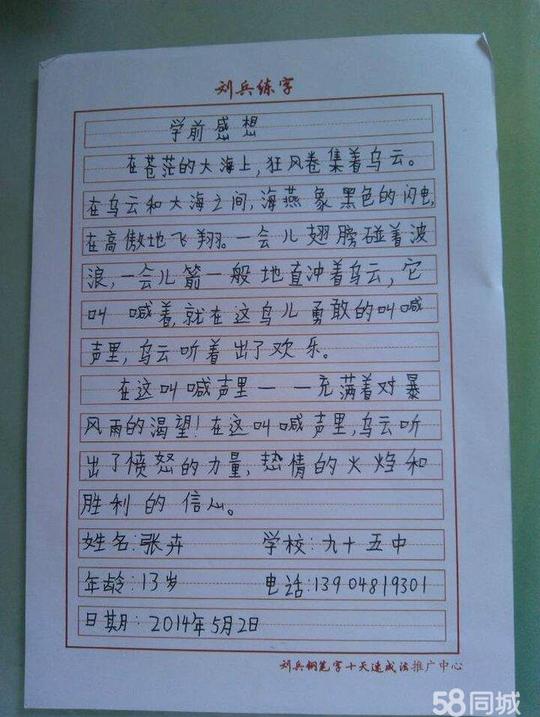 刘兵练字
学前感想
在苍茫的大海上,狂风卷集着乌云。
在乌云和大海之间,海燕象黑色的闪电,
在高傲地飞翔。一会儿翅膀碰着波
浪,一会儿箭一般地直冲着乌云,它
叫喊着,就在这鸟儿勇敢的叫喊
声里,乌云听着出了欢乐。
在这叫喊声里——充满着对暴
风雨的渴望!在这叫喊声里,乌云听
出了愤怒的力量,热情的火焰和
胜利的信心。
姓名:张卉 学校:九十五中
年龄:13岁 电话:13904819301
日期:2014年5月2日
刘兵钢笔字十天速成法推广中心
58同城